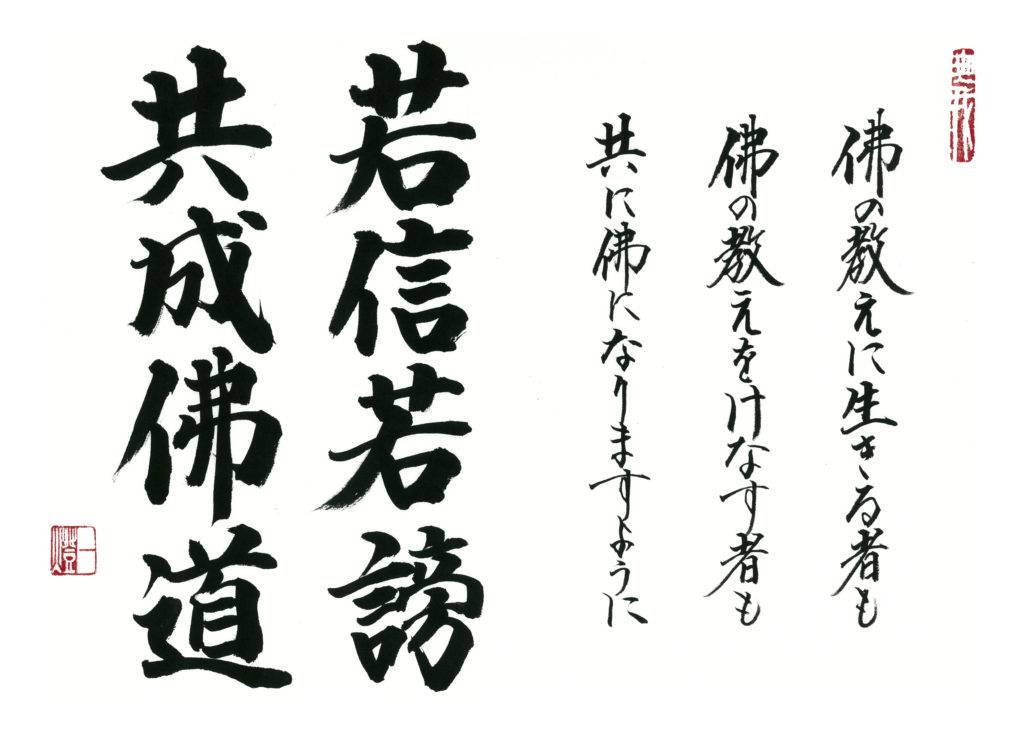 佛の教えに生きる者も
佛の教えをけなす者も
共に佛になりますように
若信若謗
共成佛道
一燈